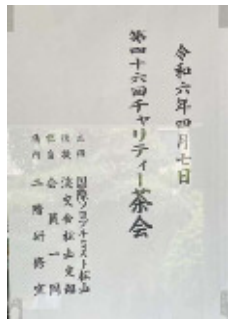 令和六年四月七日
第四十六回チャリティー茶会
主催 国際ソロプチミスト松山
後援 淡交会松山支部
担当 会員一同
場所 二階研修室